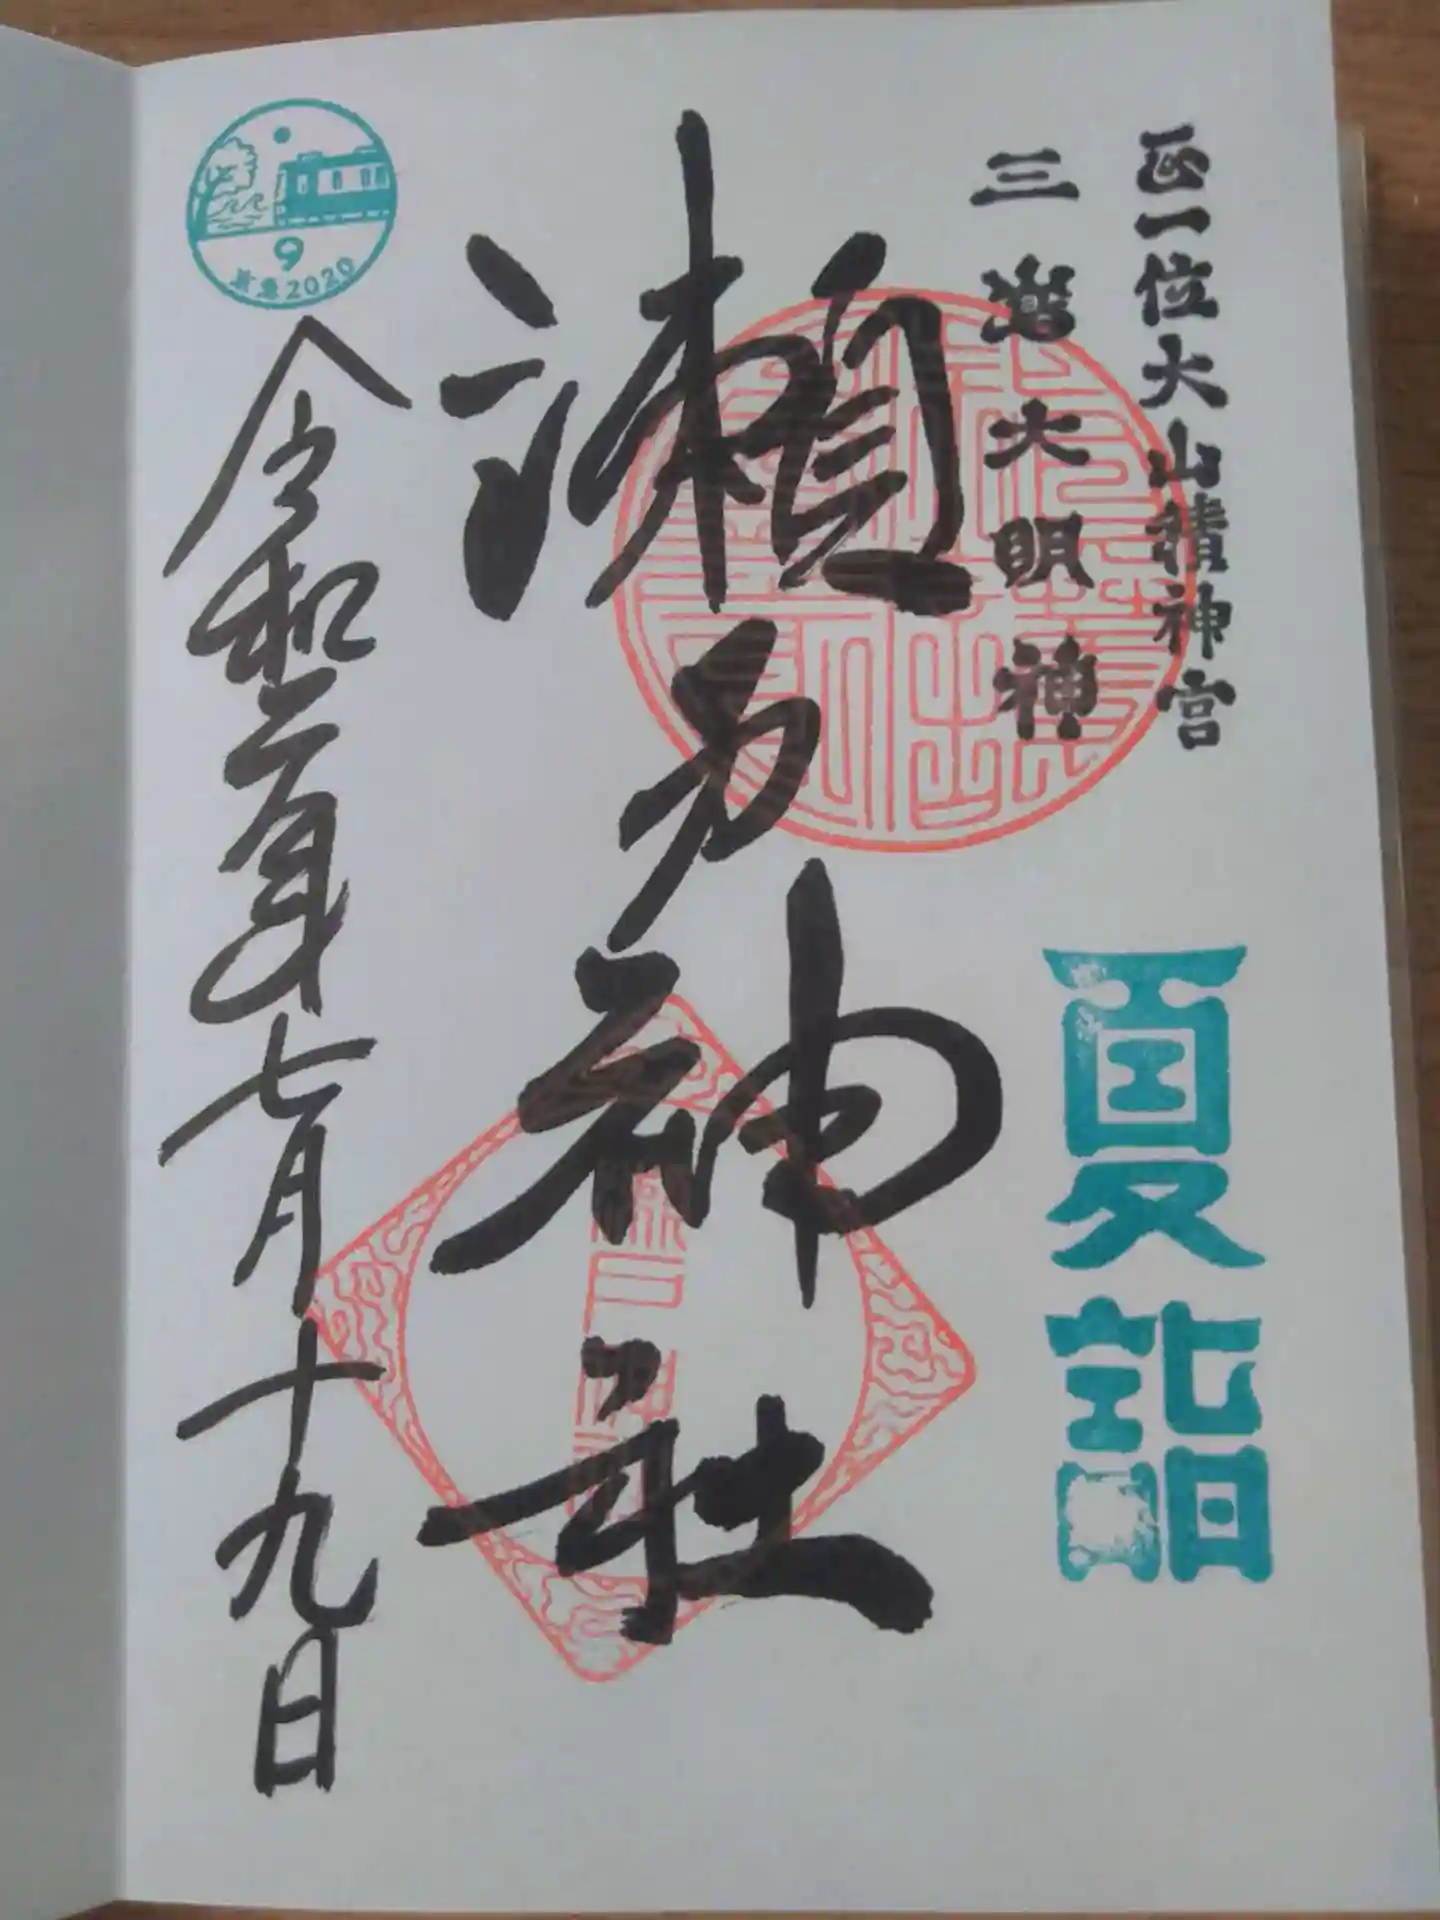 正一位大山積神宮
三嶌大明神
夏詣
瀬戸神社
瀬戸神社
9
京急2020
令和二年七月十九日